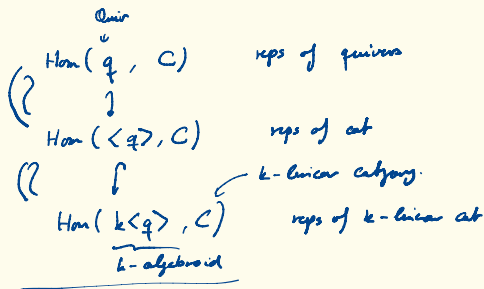 Quiv
Hom( q , C) reps of quivers
Hom( <q> , C) reps of cat
k-linear category.
Hom( k<q> , C) reps of k-linear cat
k-algebroid